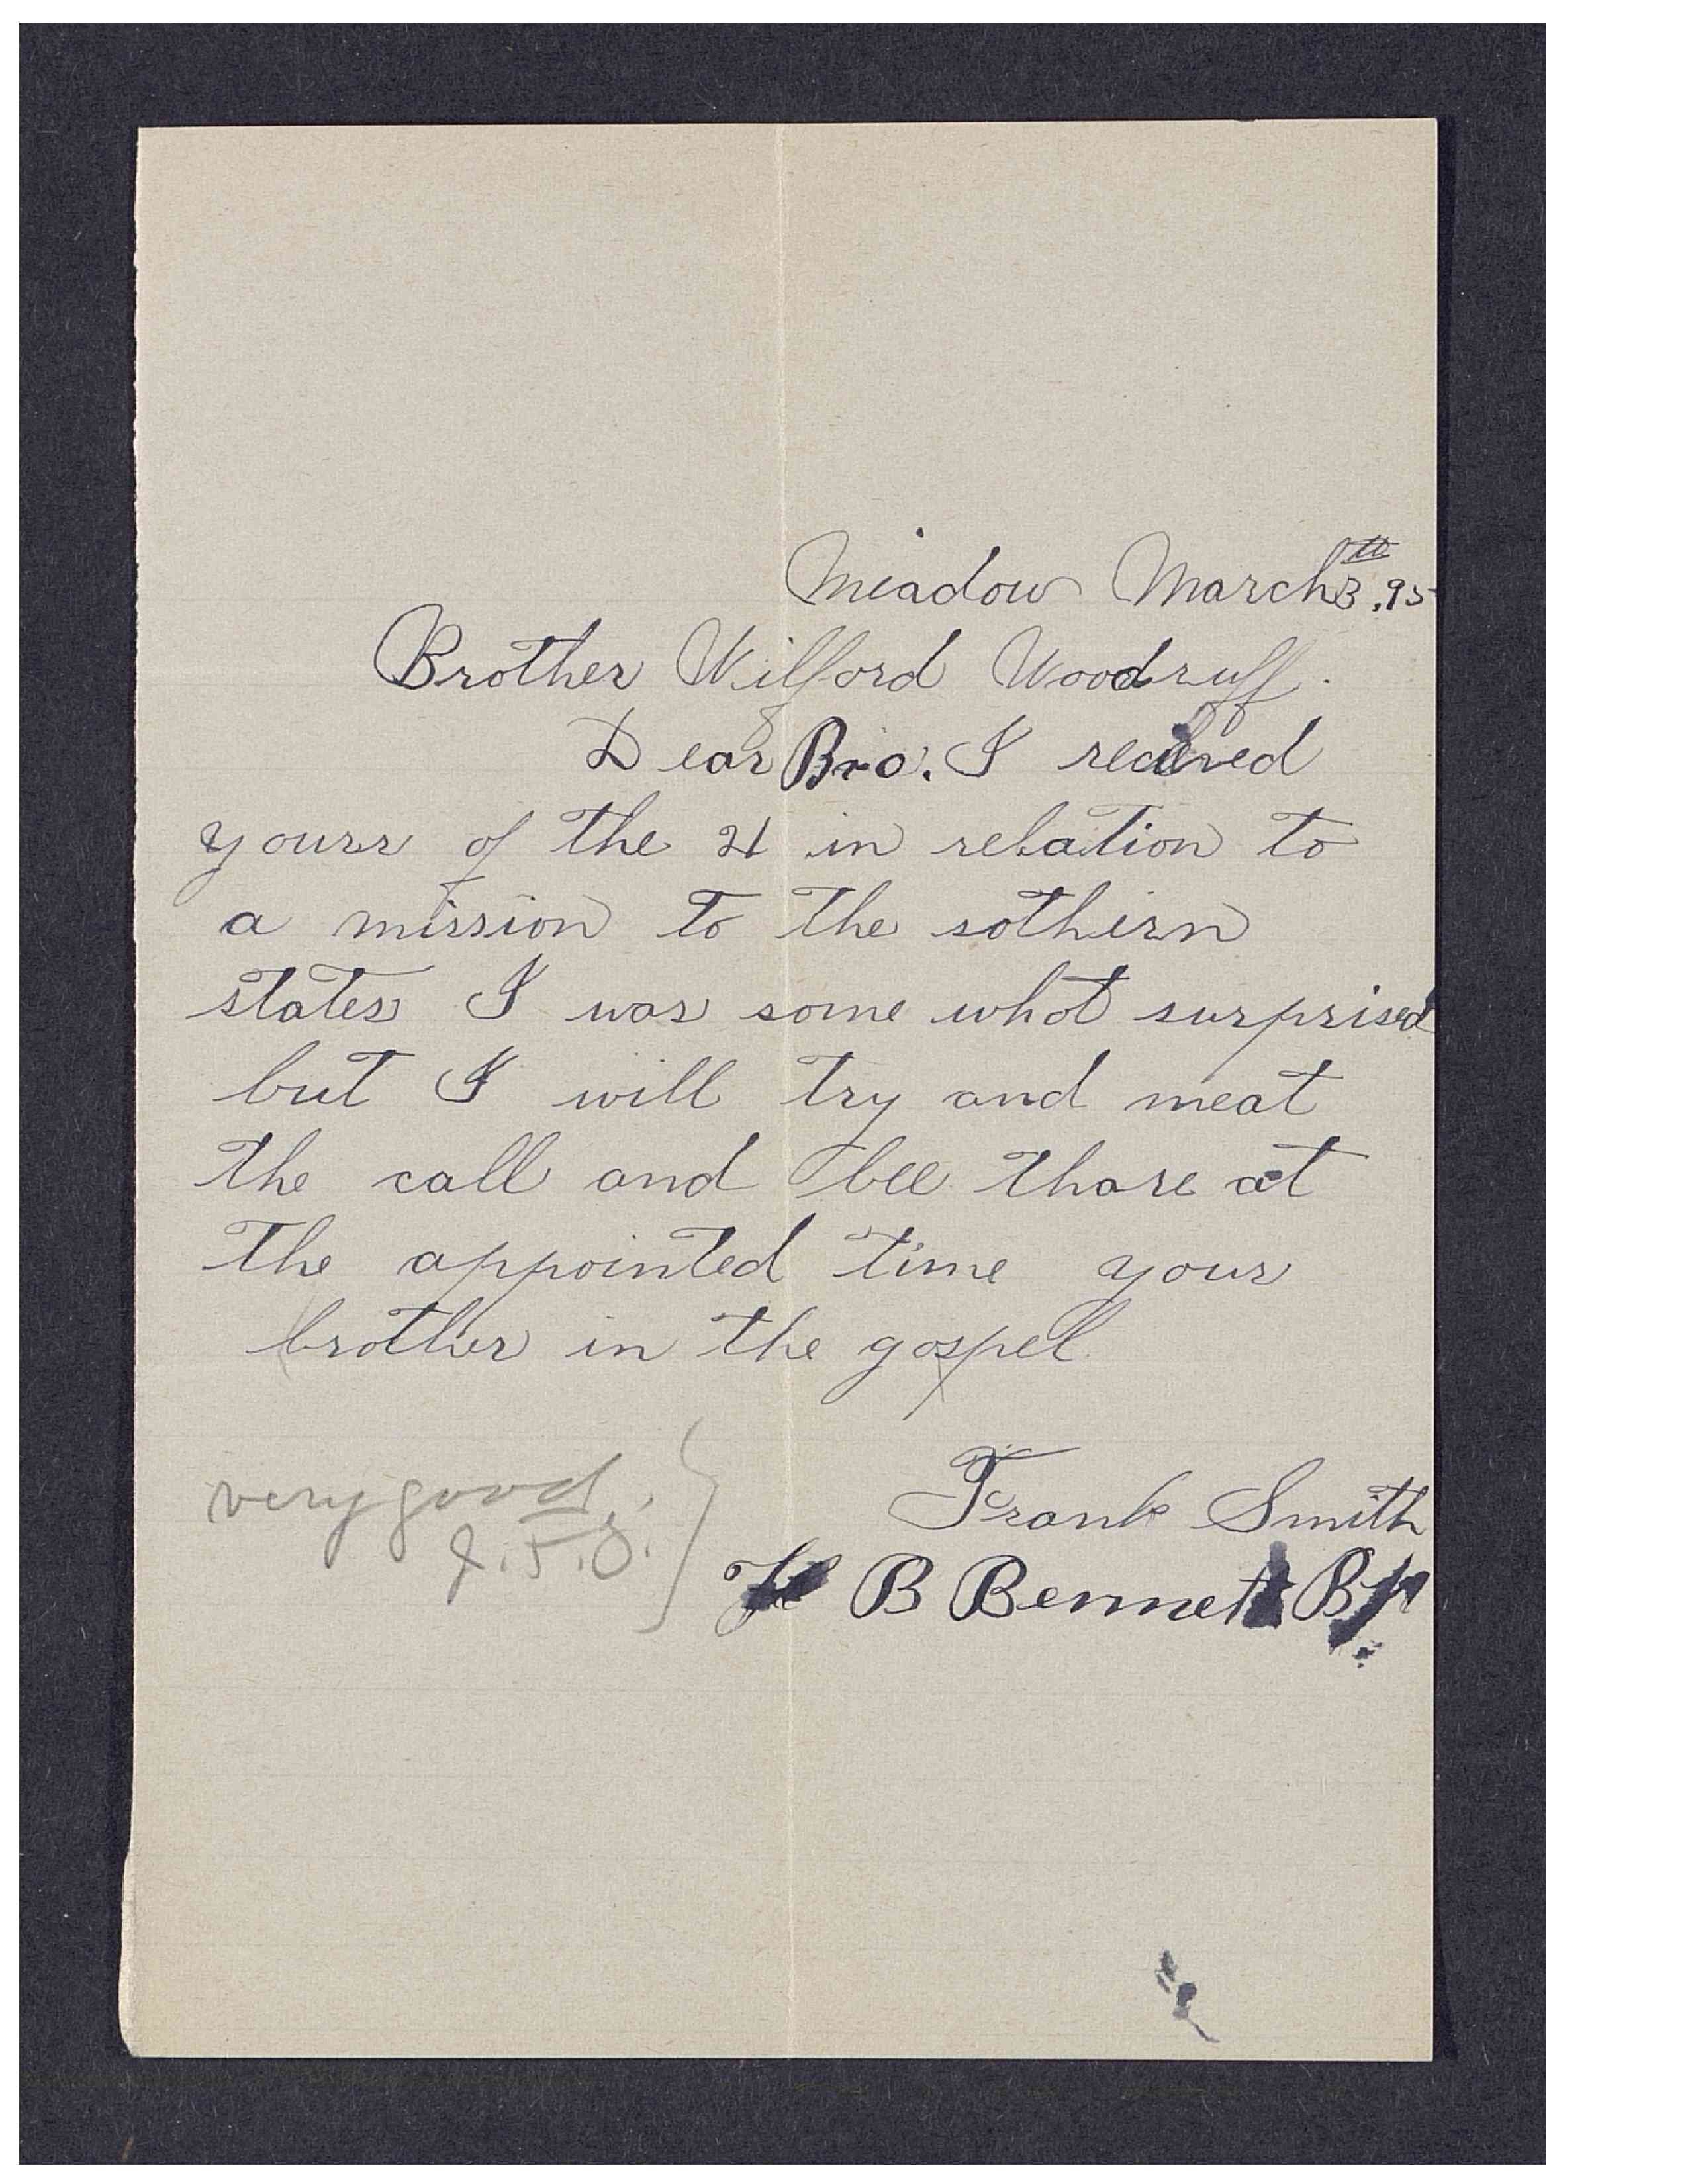 Meadow March 3th, 95
Brother Wilford Woodruff.
Dear Bro. I recieved
yours of the 21 in relation to
a mission to the sothern
states I was some what surprised
but I will try and meat
the call and bee thare at
the appointed time your
brother in the gospel.
Frank Smith
very good.
J.F.S.
H B Bennett Bp